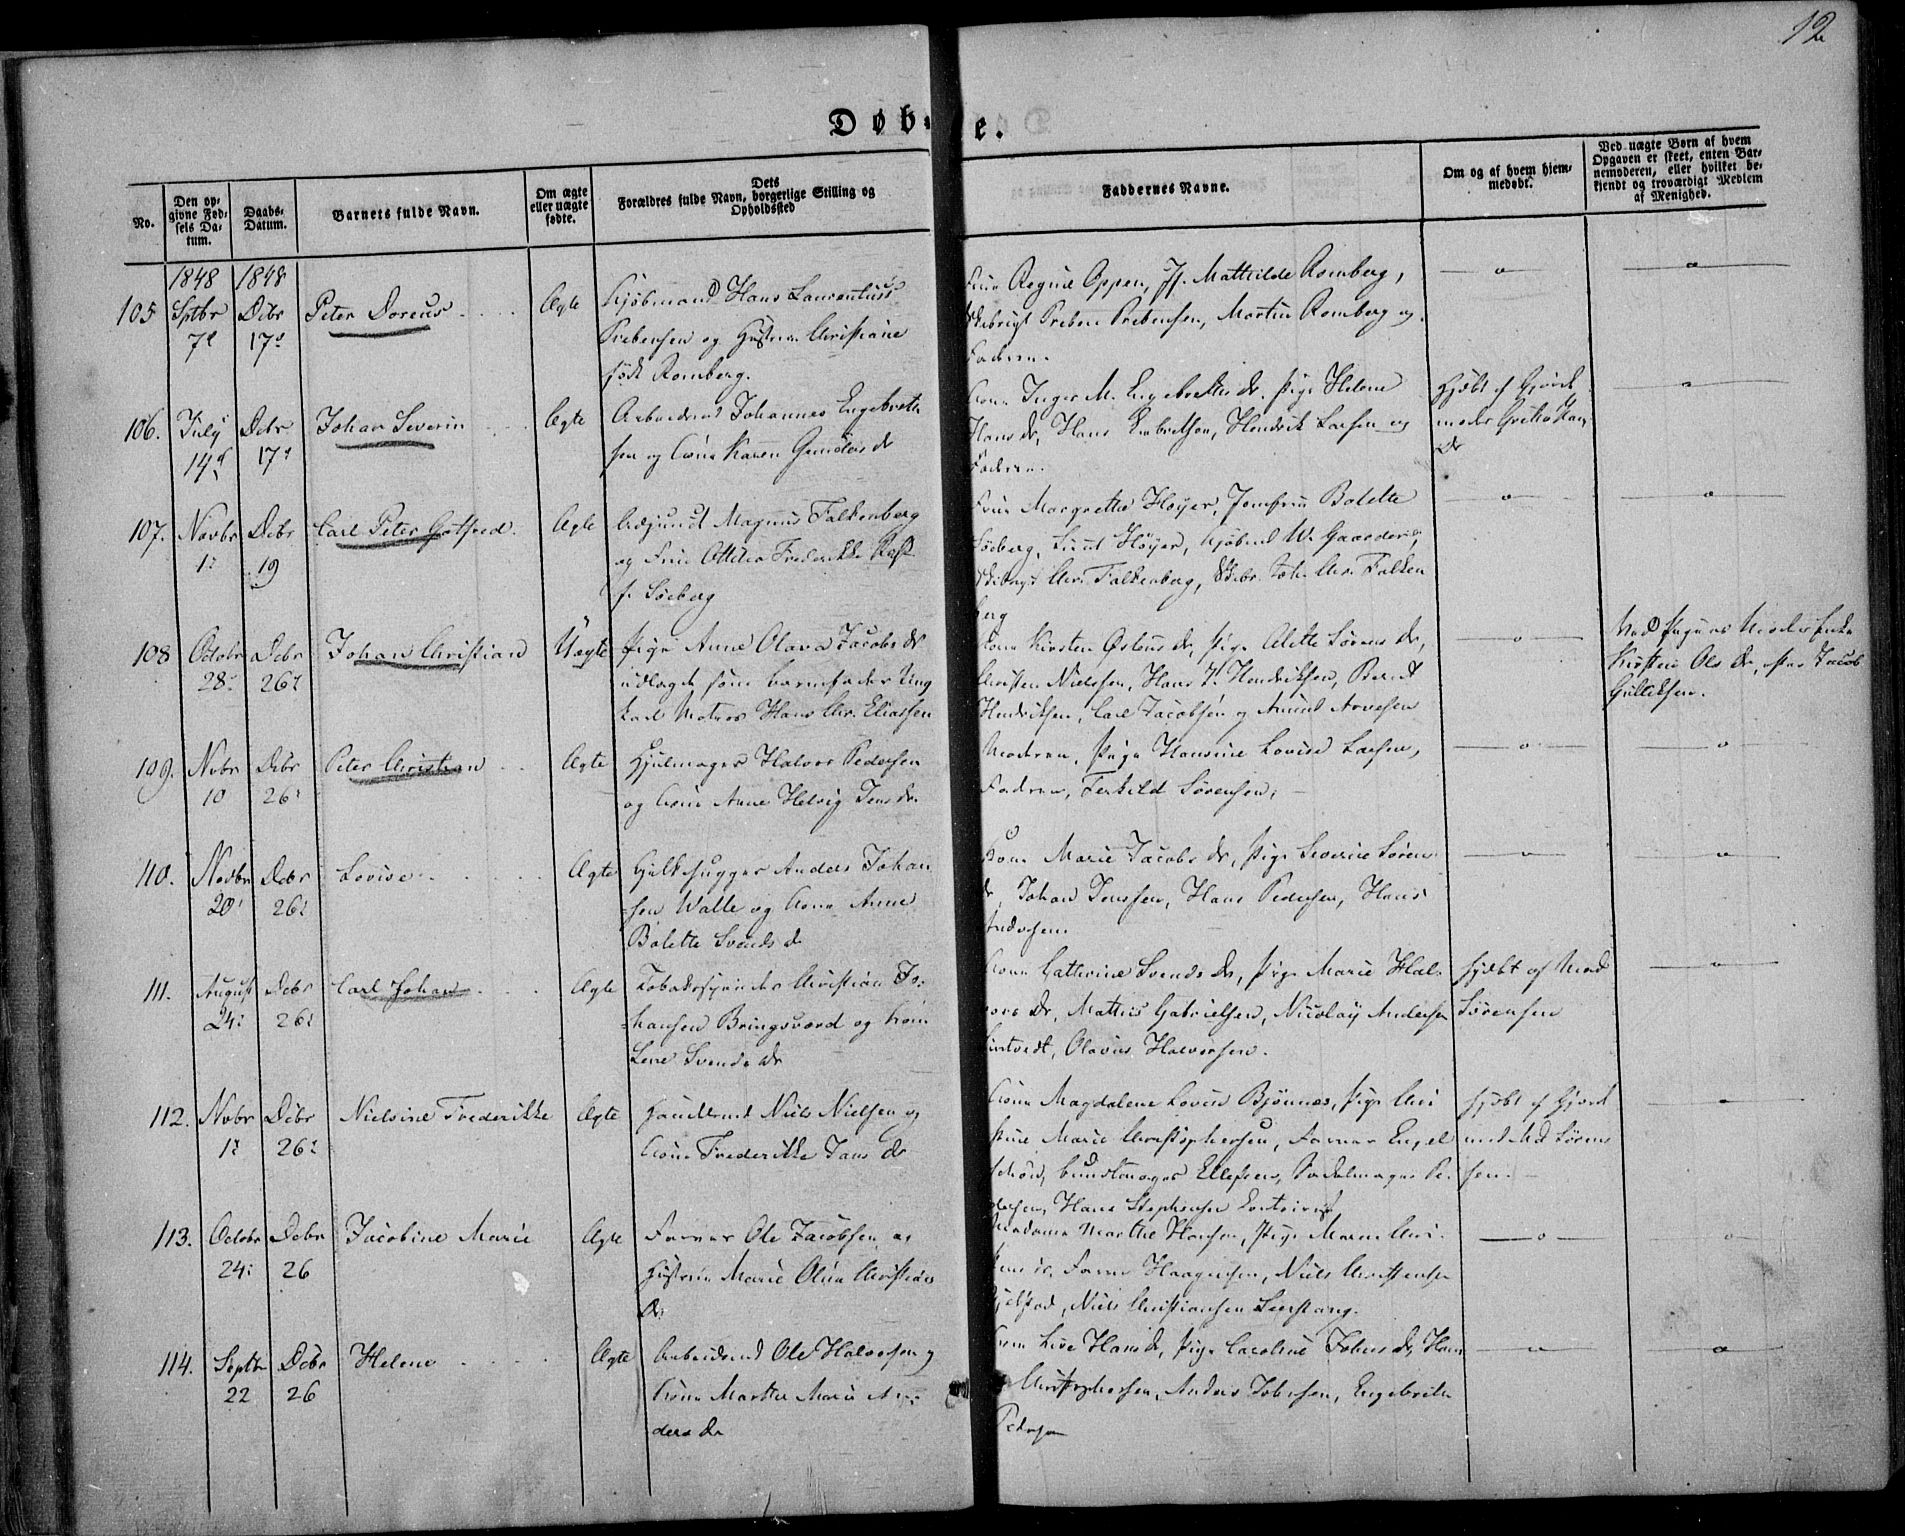 12
Døb e.
No.
Den opgivne Fødsels Datum.
Daabs-Datum.
Barnets fulde Navn.
Om ægte eller uægte fødte.
Dets Forældres fulde Navn, borgerlige Stilling og Opholdssted
Faddernes Navne.
Om og af hvem hjemmedøbt.
Ved uægte Børn af hvem Opgaven er skeet, enten Barnemoderen, eller hvilket bekjendt og troværdigt Medlem af Menighed.
1848 1848
105 Septbr Debr Peter Doreus Ægte Kjøbmand Hans Laurentius
7d 17d Prebensen og Hustru Christiane
født Romberg.
Fru Regine Oppen, Jf. Mathilde Romberg,
Preben Prebensen, Martin Romberg og
Faderen.
106. July Debr Johan Severin Ægte Arbeidsmd Johannes Engebreth
14d 17d sen og Kone Karen Gunders dr
Kone Inger M. Engebrethsdr. Pige Helene
Hans dr, Hans Hendrik Larsen og
Faderen.
Hjdbt af Gjorde
moder
dr
107. Novbr Debr Carl Peter Gotfred Ægte Adjunct Magnus Falkenberg
1d 19 og Frue Ottilia Frederikke
f. Søeberg
Frue Margrethe Høyer, Jomfru Bolette
Søeberg, Høyer, W. Gaarder
Chr. Falkenberg, Joh. Chr. Falken
berg
108 Octobr Debr Johan Christian Uægte Pige Anne Olava Jacobs dr
28d 26d udlagt som barnefader Ung
karl Matros Hans Chr. Eliassen
Kone Kirsten dr, Pige Alette Sørens dr,
Christen Nielsen, Hans Hendriksen, Berent
Hendriksen, Carl Jacobsen og Amund Arnesen
Ved Pigens Moder Enke
Kirsten Ols dr, efter Jacob
Gulliksen.
109. Novbr Debr Peter Christian Ægte Hjulmager Halvor Pedersen
10 26d og Kone Anne Helvig Jens dr.
Moderen, Pige Hansine Lovise Larsen,
Faderen, Terkild Sørensen,
110. Novbr Debr Lovise Ægte Anders Johan
20d 26d sen Walle og Kone Anne
Bolette Svends d
Kone Marie Jacobs dr, Pige Severine Sørens
dr, Johan Jenssen, Hans Pedersen, Hans
Andersen
111. August Debr Carl Johan Ægte Tobaksspinder Christian Jo-
24d 26d hansen Bringsværd og Kone
Lene Svends dr
Kone Cathrine Svends dr, Pige Marie Hal-
vors dr, Mathis Gabrielsen, Nicolay Andersen
Olavus Halvorsen.
hjdbt af Mad
Sørensen
112. Novbr Debr Nielsine Frederikke Ægte Niels Nielsen og
1d 26d Kone Frederikke Jans dr
Kone Magdalene Lovise Bjønnes, Pige Chri
stine Marie Christophersen, Farver Engel
schøn, bundtmager Ellefsen, Sadelmager Pe-
dersen, Hans Stephensen
hjdbt af Gjord
md Md Søren
sen.
113. Octobr Debr Jacobine Marie Ægte Farver Ole Jacobsen og
24d 26 Hustru Marie Olea Christens
dr
Madame Marthe Hansen, Pige Maren Chri-
stens dr, Farver Haagensen, Niels Christensen
Niels Christiansen
114. Septbr Debr Helene Ægte Arbeidsmd Ole Halvorsen og
22 26 Kone Marthe Marie An-
ders dr
Kone Live Hans dr, Pige Caroline Johns dr, Hans
Christophersen, Anders Johnsen, Engebreth
Pedersen